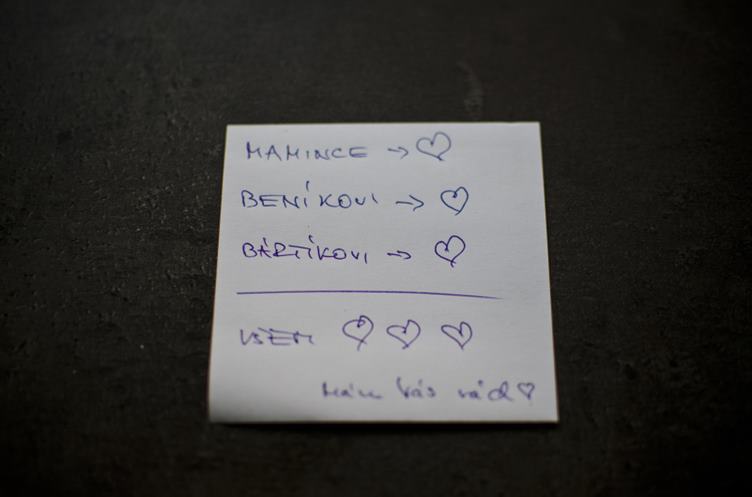 MAMINCE → ♡
BENÍKOVI → ♡
BÁRTÍKOVI → ♡
VŠEM ♡ ♡ ♡
Mám Vás rád ♡